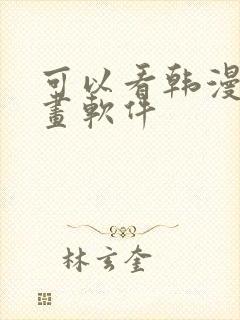 可以看韩漫
畫軟件
林玄奎